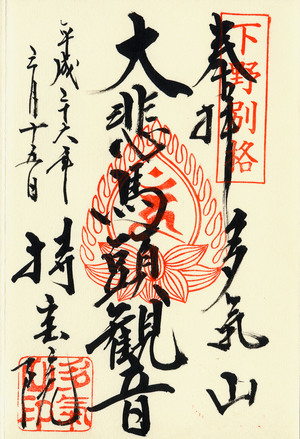 下野別格
奉拝
多氣山
大悲馬頭観音
平成二十六年
三月十五日
持宝院